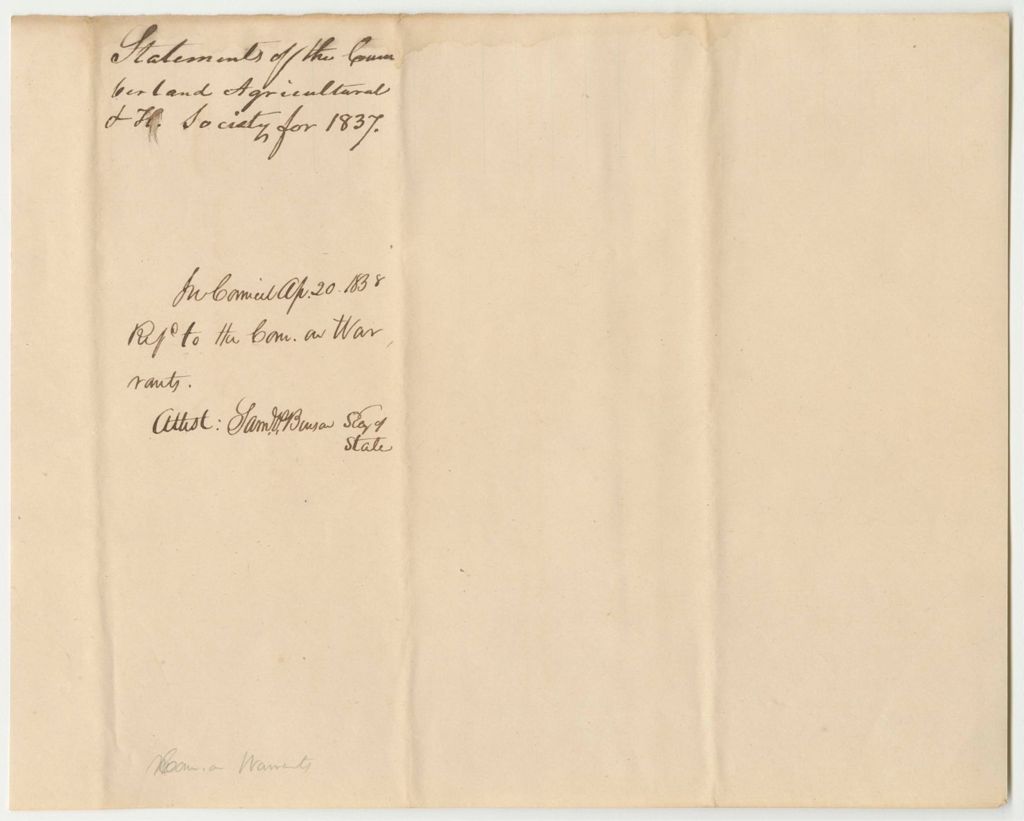 Statements of the Cum
berland Agricultural
& H. Society for 1837.
In Council Ap. 20. 1838
Refd to the Com. on War
rants.
Attest: Saml P. Benson Secy of
State
Com. on Warrants